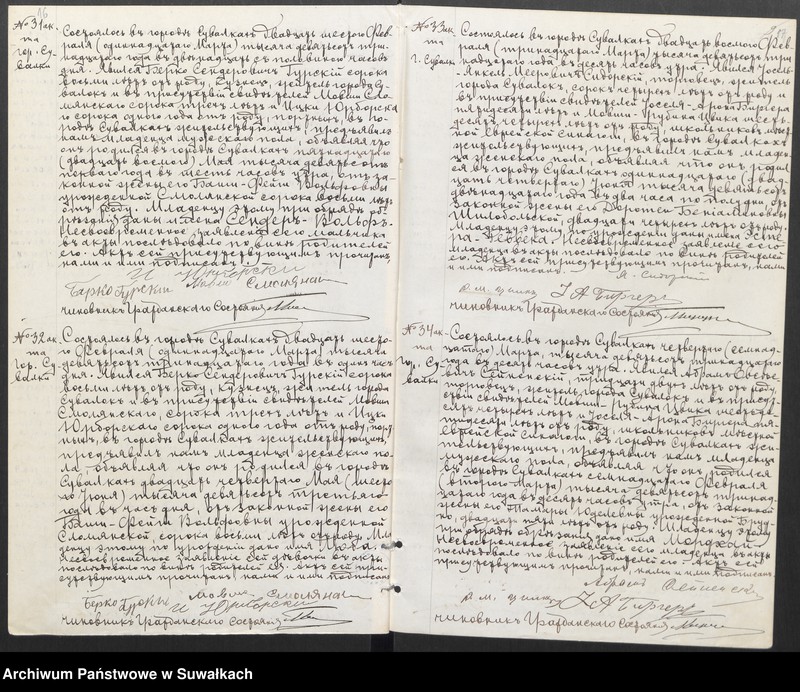 16
№31 ак-
та
гор. Су-
валки
Состоялось въ городѣ Сувалкахъ двадцать шестого Фев-
раля (одиннадцатаго Марта) тысяча девятьсотъ три-
надцатаго года въ двѣнадцать съ половиной часовъ
дня. Явился Берко Сендеровичъ Гурскій сорока
восьми лѣтъ отъ роду, кузнецъ, житель города Су-
валокъ и въ присутствіи свидѣтелей Мовши Смо-
лянскаго сорока трехъ лѣтъ и Ицки Юрборска-
го сорока одного года отъ роду, портныхъ, въ го-
родѣ Сувалкахъ жительствующихъ, предъявилъ
намъ младенца мужескаго пола, объявляя что
онъ родился въ городѣ Сувалкахъ пятнадцатаго
(двадцать восьмого) Мая тысяча девятьсотъ
перваго года въ шесть часовъ утра, отъ за-
конной жены его
урожденной Смолянской сорока восьми лѣтъ
отъ роду. Младенцу этому при обрядѣ об-
рѣзанія дано имя
Несвоевременное заявленіе сего мальчика
въ акты послѣдовало по винѣ родителей
его. Актъ сей присутствующимъ прочитанъ,
нами и ими подписанъ.
И Юрборски
Берко Гурскій Мовша Смолянски
Чиновникъ Гражданскаго Состоянія
№32 ак-
та
гор. Су-
валки
Состоялось въ городѣ Сувалкахъ двадцать шесто-
го Февраля (одиннадцатаго Марта) тысяча
девятьсотъ тринадцатаго года въ одинъ часъ
дня. Явился Берко Сендеровичъ Гурскій сорока
восьми лѣтъ отъ роду, кузнецъ, житель города
Сувалокъ и въ присутствіи свидѣтелей Мовши
Смолянскаго, сорока трехъ лѣтъ и Ицки
Юрборскаго сорока одного года отъ роду, порт-
ныхъ, въ городѣ Сувалкахъ жительствующихъ,
предъявилъ намъ младенца женскаго по-
ла, объявляя что онъ родился въ городѣ
Сувалкахъ двадцать четвертаго Мая (шесто-
го Іюня) тысяча девятьсотъ третьяго
года въ часъ дня, отъ законной жены его
Вольфовны урожденной
Смолянской, сорока восьми лѣтъ отъ роду. Мла-
денцу этому по урожденіи дано имя
Несвоевременное заявленіе сей дѣвочки въ акты
послѣдовало по винѣ родителей ея. Актъ сей при-
сутствующимъ прочитанъ, нами и ими подписанъ.
Мовша Смолянски
Берко Гурскій И Юрборски
Чиновникъ Гражданскаго Состоянія
№33 ак-
та
г. Сувалки
Состоялось въ городѣ Сувалкахъ двадцать восьмого Фев-
раля (тринадцатаго Марта) тысяча девятьсотъ три-
надцатаго года, въ десять часовъ утра. Явился Іосель-
Янкель Мееровичъ Сидорскій, торговецъ, житель
города Сувалокъ, сорока четырехъ лѣтъ отъ роду и
въ присутствіи свидѣтелей Іоселя-Арона Биргера
пятидесяти лѣтъ и Мовши-Рувина Цвика шести-
десяти четырехъ лѣтъ отъ роду, школьниковъ мѣст-
ной Еврейской Синагоги, въ городѣ Сувалкахъ
жительствующихъ, предъявилъ намъ младен-
ца женскаго пола, объявляя что онъ родил-
ся въ городѣ Сувалкахъ одиннадцатаго (двад-
цать четвертаго) Іюня тысяча девятьсотъ
двѣнадцатаго года въ два часа по полудни, отъ
законной жены его Доротеи Беніаминовны
Шилобольской, двадцати четырехъ лѣтъ отъ роду.
Младенцу этому по урожденіи дано имя
Несвоевременное заявленіе сего
младенца въ акты послѣдовало по винѣ родителей
его. Актъ сей присутствующимъ прочитанъ, нами
и ими подписанъ.
Я. Сидорскій
Биргеръ
Чиновникъ Гражданскаго Состоянія
№34 ак-
та
гор. Су-
валки
Состоялось въ городѣ Сувалкахъ четвертаго (семнад-
цатаго) Марта, тысяча девятьсотъ тринадцатаго
года въ десять часовъ утра. Явился Абрамъ
тридцати двухъ лѣтъ отъ роду,
торговецъ, житель города Сувалокъ и въ присут-
ствіи свидѣтелей Мовши-Рувина Цвика шестьде-
сятъ четырехъ лѣтъ и Іоселя-Арона Биргера пя-
тидесяти лѣтъ отъ роду, школьниковъ мѣстной
Еврейской Синагоги, въ городѣ Сувалкахъ жи-
тельствующихъ, предъявилъ намъ младенца
мужескаго пола, объявляя что онъ родился
въ городѣ Сувалкахъ семнадцатаго Февраля
(второго Марта) тысяча девятьсотъ тринад-
цатаго года въ десять часовъ утра, отъ законной
жены его Тамары Юделевны урожденной
двадцати пяти лѣтъ отъ роду. Младенцу этому
при обрядѣ обрѣзанія дано имя
Несвоевременное заявленіе сего младенца въ акты
послѣдовало по винѣ родителей его. Актъ сей
присутствующимъ прочитанъ, нами и ими подписанъ.
Абрамъ
Биргеръ
Чиновникъ Гражданскаго Состоянія
Archiwum Państwowe w Suwałkach